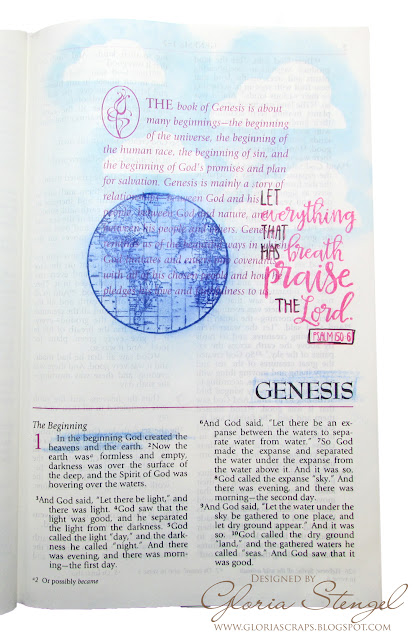 THE book of Genesis is about
many beginnings—the beginning
of the universe, the beginning of
the human race, the beginning of sin, and
the beginning of God's promises and plan
for salvation. Genesis is mainly a story of
between God and his
people, between God and nature, and
between his people and others.
us of the ways in which
God initiates and covenants
with his chosen people and how he
pledges his love and to us.
LET
everything
THAT
HAS breath
praise
THE Lord.
PSALM 150:6
GENESIS
The Beginning
1 In the beginning God created the
heavens and the earth. 2Now the
earth wasa formless and empty,
darkness was over the surface of
the deep, and the Spirit of God was
hovering over the waters.
3And God said, "Let there be light," and
there was light. 4God saw that the
light was good, and he separated
the light from the darkness. 5God
called the light "day," and the dark-
ness he called "night." And there
was evening, and there was morn-
ing—the first day.
a2 Or possibly became
6And God said, "Let there be an ex-
panse between the waters to sepa-
rate water from water." 7So God
made the expanse and separated
the water under the expanse from
the water above it. And it was so.
8God called the expanse "sky." And
there was evening, and there was
morning—the second day.
9And God said, "Let the water under the
sky be gathered to one place, and
let dry ground appear." And it was
so. 10God called the dry ground
"land," and the gathered waters he
called "seas." And God saw that it
was good.
DESIGNED BY
Gloria Stengel
WWW.GLORIASCRAPS.BLOGSPOT.COM